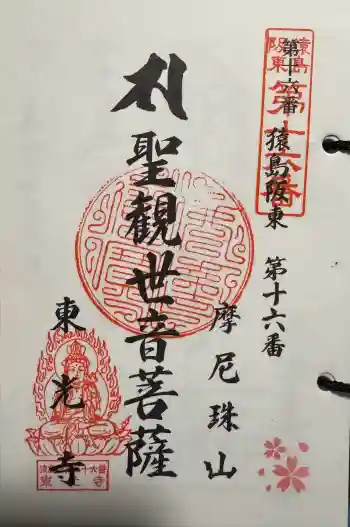 猿島阪東
第十六番
第十六番
猿島阪東 第十六番
摩尼珠山
札 聖観世音菩薩
東光寺